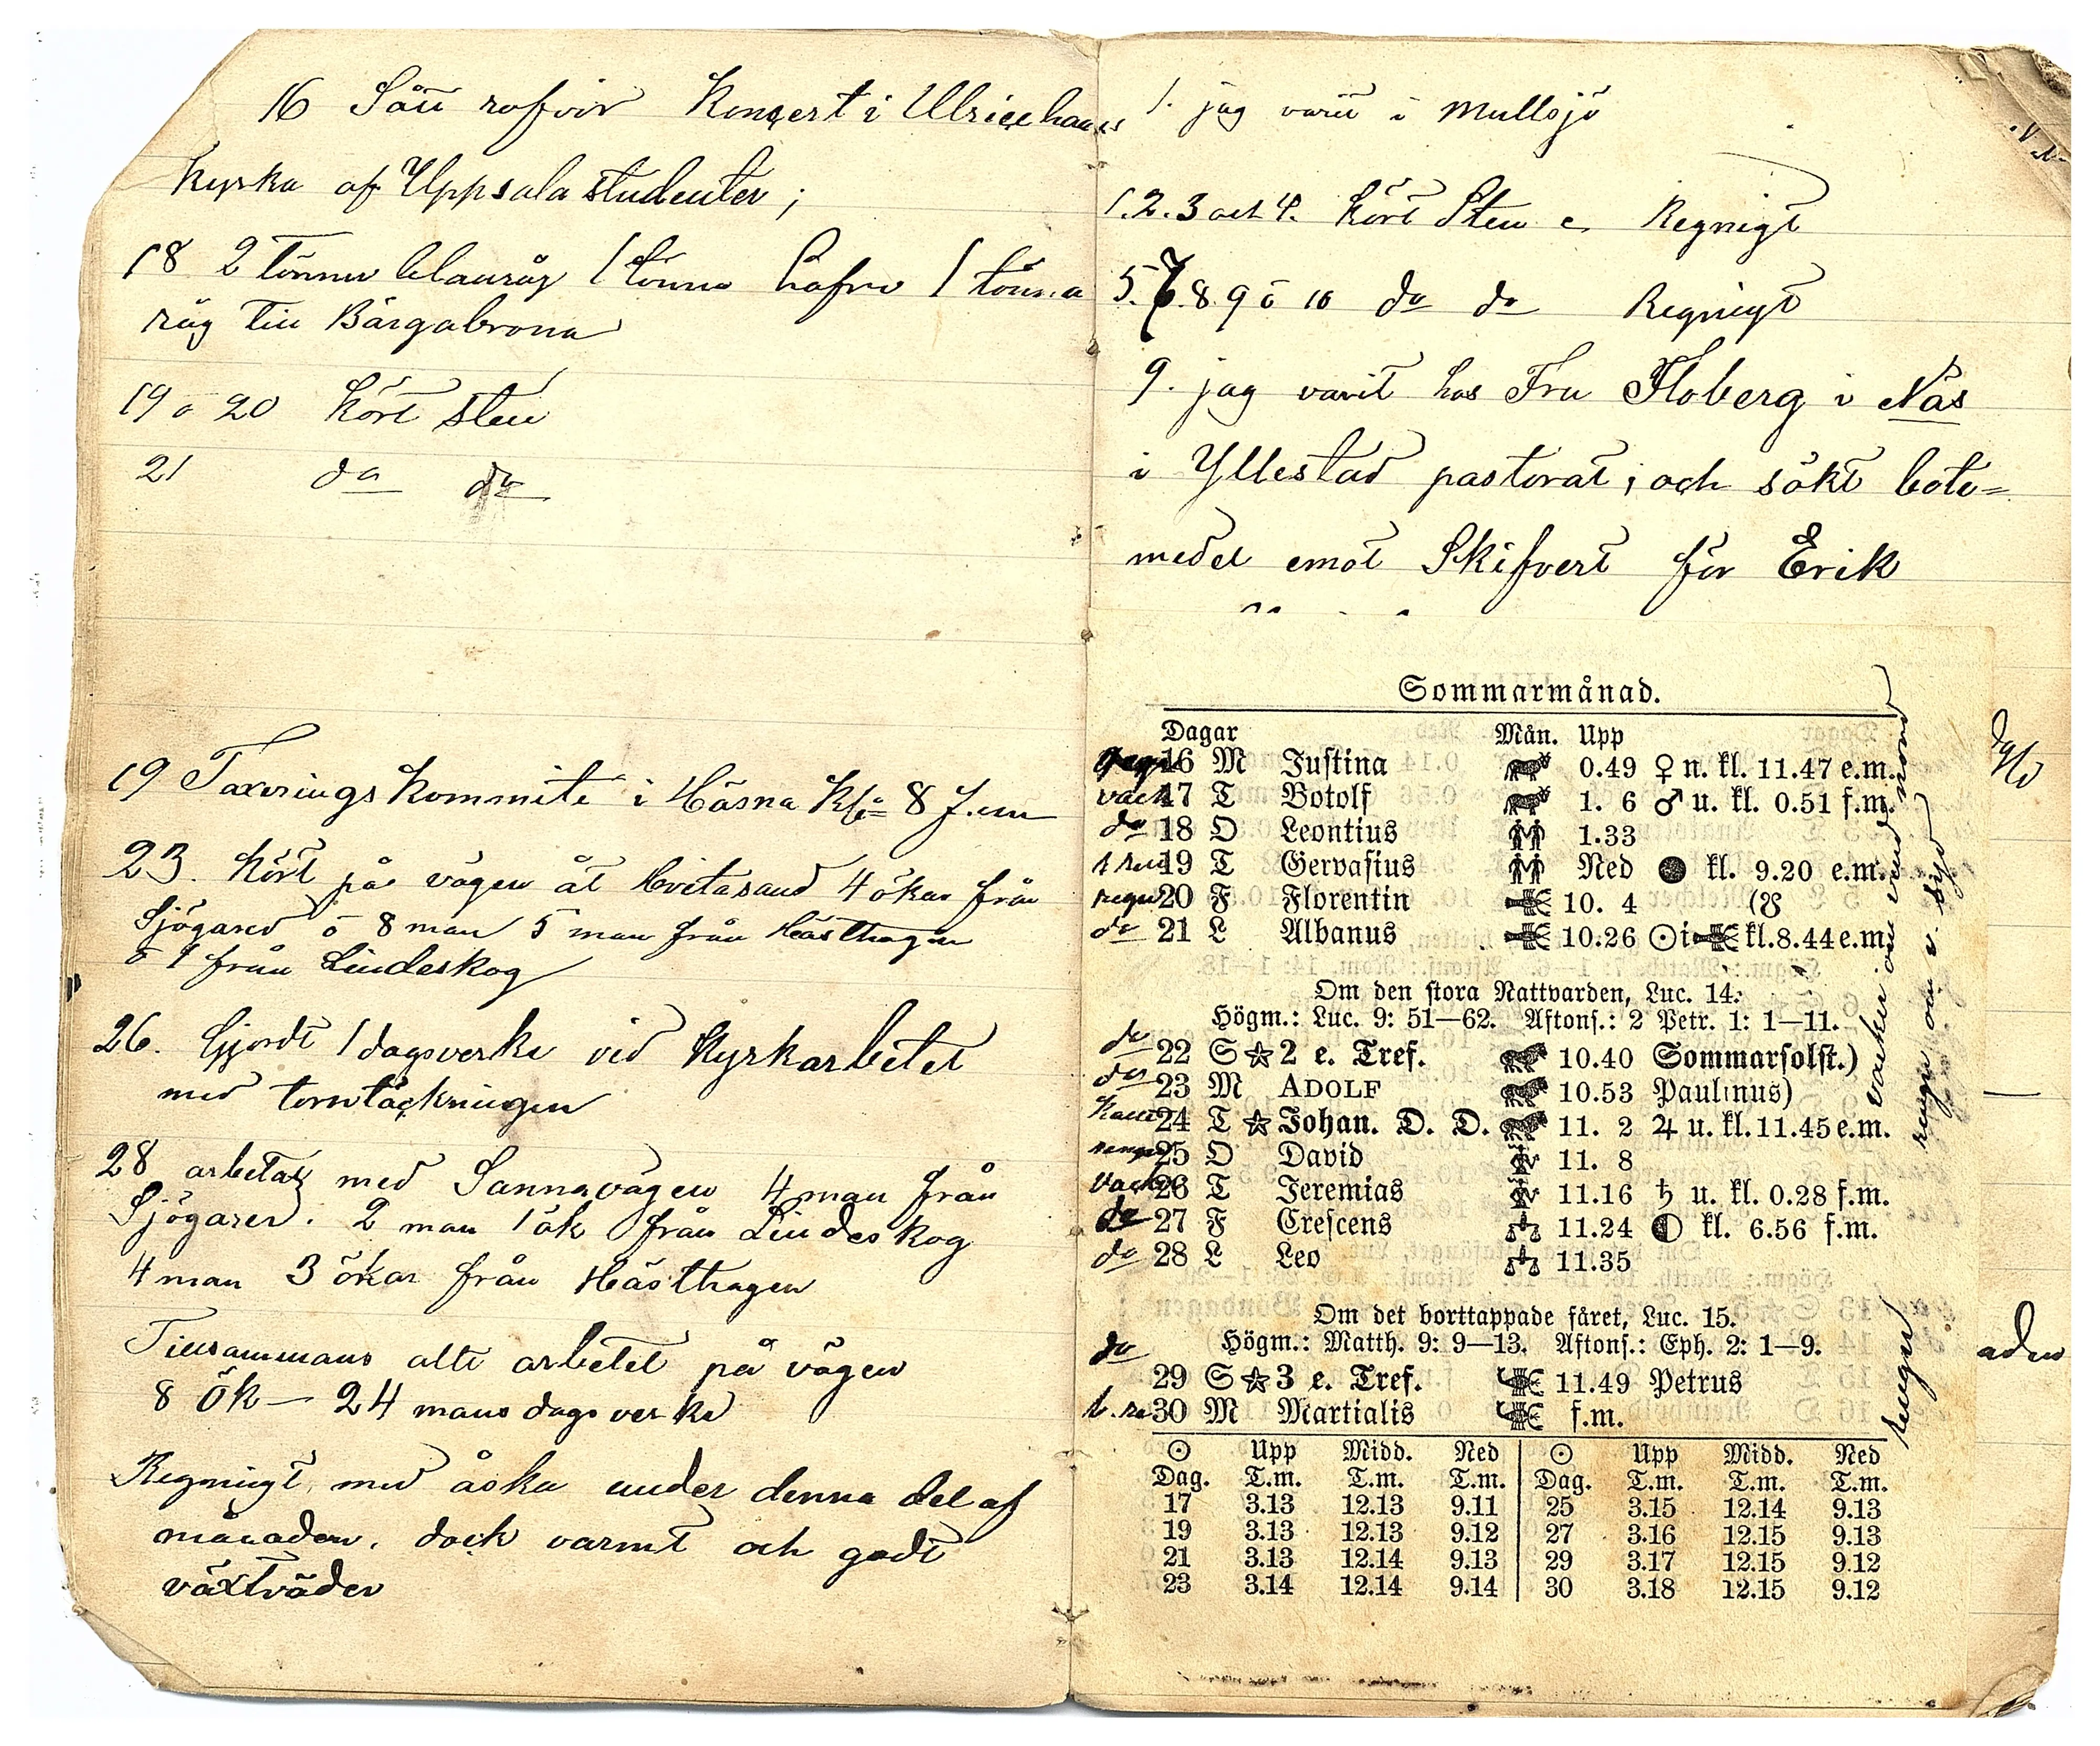 16 Sått rofvor Konsert i Ulricehams
Kyrka af Uppsala studenter;
18 2 tunnor blanråg 1 tunna hafre 1 tunna
råg till Bårgabrona
19 o 20 Kört sten
21 do do
19 Taxerings Kommite i Håsna Kl. 8 f.m
23. Kört på vägen åt Hvitasand 4 ökar från
Sjögared o 8 man 5 man från Hästhagen
o 1 från Lindeskog
26. Gjordt 1 dagsverke vid Kyrkarbetet
med torntäckningen
28 arbetat med Sannavägen 4 man från
Sjögared. 2 man 1 ök från Lindeskog
4 man 3 ökar från Hästhagen
Tillsammans allt arbetet på vägen
8 ök — 24 mans dagsverke
Regnigt med åska under denna del af
månaden, dock varmt och godt
växtväder
1. jag varit i Mullsjö
1.2.3 och 4. Kört Sten Regnigt
5.6.8.9 o 10 do do Regnigt
9. jag varit hos Fru Floberg i Näs
i Yllestad pastorat; och sökt bote=
medel emot Skifvert för Erik
Sommarmånad.
Dagar Mån. Upp
regn 16 M Justina 0.49 ♀ n. kl. 11.47 e.m.
vack 17 T Botolf 1. 6 ♂ u. kl. 0.51 f.m.
do 18 O Leontius 1.33
19 T Gervasius Ned ● kl. 9.20 e.m.
regn 20 F Florentin 10. 4 (☋
do 21 L Albanus 10.26 ☉ i ♋ kl. 8.44 e.m.
Om den stora Nattvarden, Luc. 14.
Högm.: Luc. 9: 51—62. Aftons.: 2 Petr. 1: 1—11.
do 22 S ☆ 2 e. Tref. 10.40 Sommarsolst.)
do 23 M ADOLF 10.53 Paulinus)
24 T ☆ Johan. D. D. 11. 2 ♃ u. kl. 11.45 e.m.
25 O David 11. 8
vack 26 T Jeremias 11.16 ♄ u. kl. 0.28 f.m.
do 27 F Crescens 11.24 ◐ kl. 6.56 f.m.
do 28 L Leo 11.35
Om det borttappade fåret, Luc. 15.
do Högm.: Matth. 9: 9—13. Aftons.: Eph. 2: 1—9.
29 S ☆ 3 e. Tref. 11.49 Petrus
30 M Martialis f.m.
☉ Upp Midd. Ned ☉ Upp Midd. Ned
Dag. T.m. T.m. T.m. Dag. T.m. T.m. T.m.
17 3.13 12.13 9.11 25 3.15 12.14 9.13
19 3.13 12.13 9.12 27 3.16 12.15 9.13
21 3.13 12.14 9.13 29 3.17 12.15 9.12
23 3.14 12.14 9.14 30 3.18 12.15 9.12
vacker om vind nord
regn om v. syd
regn
aden